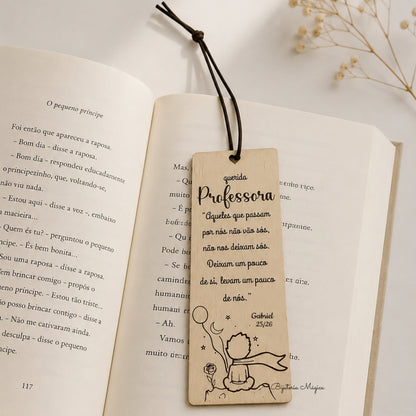 O pequeno príncipe
Foi então que apareceu a raposa.
- Bom dia - disse a raposa.
- Bom dia - respondeu educadamente
o principezinho, que, voltando-se,
não viu nada.
- Estou aqui - disse a voz -, embaixo
da macieira...
- Quem és tu? - perguntou o pequeno
príncipe. - És bem bonita...
- Sou uma raposa - disse a raposa.
- Vem brincar comigo - propôs o
pequeno príncipe. - Estou tão triste...
- Não posso brincar contigo - disse a
- Não me cativaram ainda.
desculpa - disse o pequeno
príncipe.
117
Mas,
muito
- É p
- Qu
- Se
humanos
humanos
- Ah.
Vamos
muito
querida
Professora
"Aqueles que passam
por nós não vão sós,
não nos deixam sós.
Deixam um pouco
de si, levam um pouco
de nós."
Gabriel
25/26